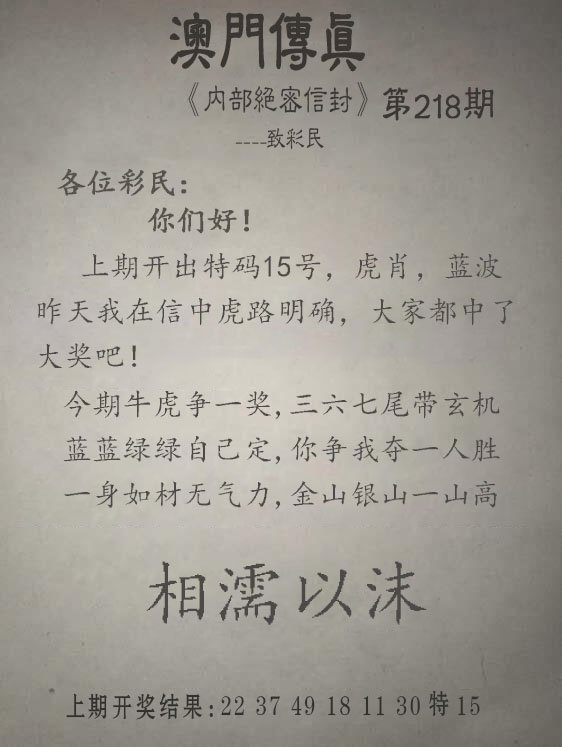 澳門傳眞
《内部絕密信封》第218期
----致彩民
各位彩民：
你们好！
上期开出特码15号，虎肖，蓝波
昨天我在信中虎路明确，大家都中了
大奖吧！
今期牛虎争一奖,三六七尾带玄机
蓝蓝绿绿自己定,你争我夺一人胜
一身如材无气力,金山银山一山高
相濡以沫
上期开奖结果:22 37 49 18 11 30 特 15